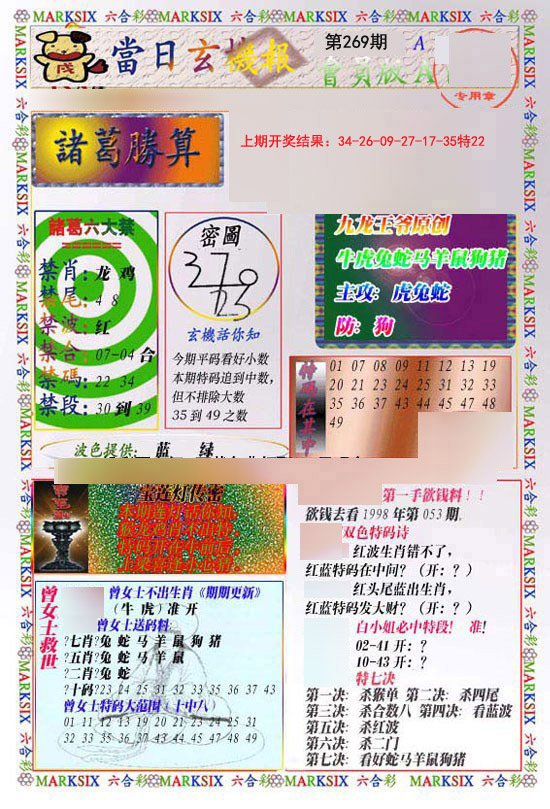 MARKSIX 六合彩 MARKSIX 六合彩 MARKSIX 六合彩 MARKSIX 六合彩
當日玄機報
第269期
A
會員版A
专用章
諸葛勝算
上期开奖结果：34-26-09-27-17-35特22
諸葛六大禁
禁肖：龙 鸡
禁尾：4 8
禁波：红
禁合：07-04 合
禁碼：22 34
禁段：30 到 39
密圖
玄機話你知
今期平码看好小数
本期特码追到中数，
但不排除大数
35 到 49 之数
九龙王爷原创
牛虎兔蛇马羊鼠狗猪
主攻：虎兔蛇
防：狗
特码在其中
01 07 08 09 11 12 13 19
20 21 23 24 25 31 32 33
35 36 37 43 44 45 47 48
49
波色提供：蓝 绿
宝莲灯传密
第一手欲钱料！！
欲钱去看 1998 年第 053 期.
双色特码诗
红波生肖错不了，
红蓝特码在中间？（开：？）
红头尾蓝出生肖，
红蓝特码发大财？（开：？）
白小姐必中特段！ 准！
02-41 开：？
10-43 开：？
特七决
第一决：杀猴单 第二决：杀四尾
第三决：杀合数八 第四决：看蓝波
第五决：杀红波
第六决：杀二门
第七决：看好蛇马羊鼠狗猪
曾女士救世
曾女士不出生肖《期期更新》
（牛 虎）准 开
曾女士送码料
?七肖?兔 蛇 马 羊 鼠 狗 猪
?五肖?兔 蛇 马 羊 鼠
?二肖?兔 蛇
?十码?23 24 25 31 32 33 35 36 37 43
曾女士特码大范围（十中八）
01 11 12 13 19 20 21 23 24 25 31
32 33 35 36 37 43 44 45 47 48 49
MARKSIX 六合彩 MARKSIX 六合彩 MARKSIX 六合彩 MARKSIX 六合彩